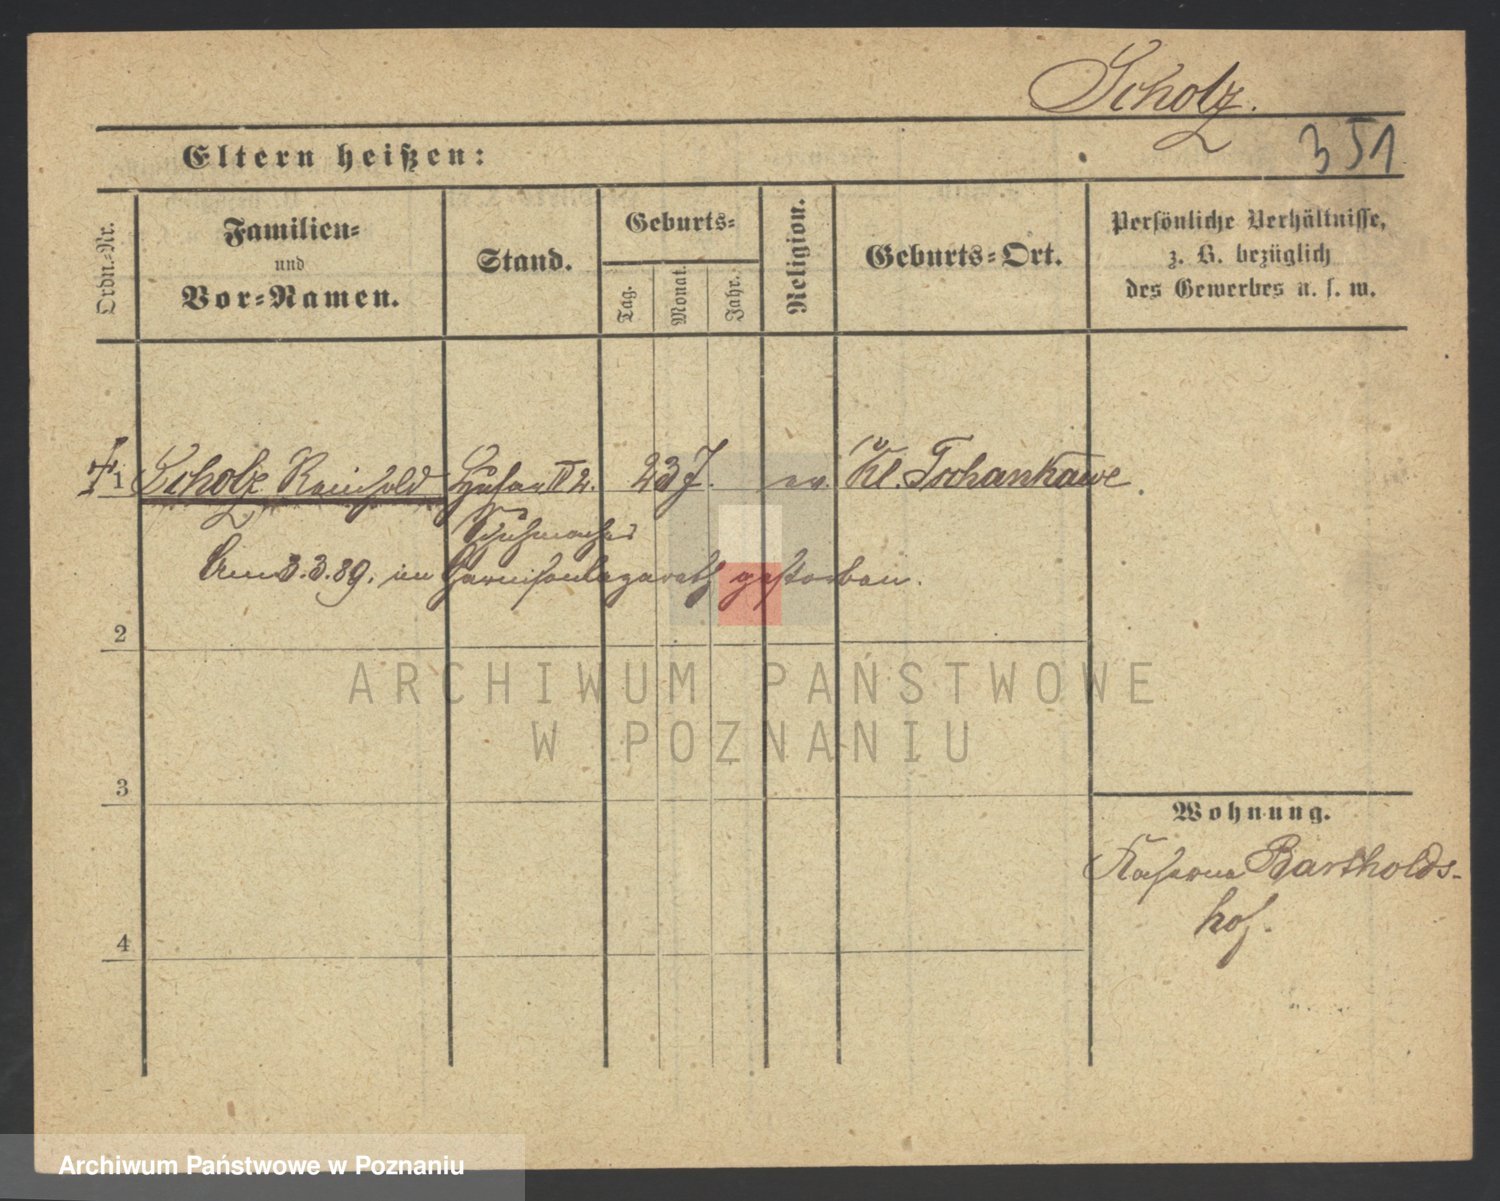 Scholz.
351
Eltern heißen:
Ordn.-Nr.
Familien-
und
Vor-Namen.
Stand.
Geburts-
Tag.
Monat.
Jahr.
Religion.
Geburts-Ort.
Persönliche Verhältnisse,
z. B. bezüglich
des Gewerbes u. s. w.
1 Scholz Reinhold Husar II 2. 23 J. ev. Kl. Tschunkawe.
Schuhmacher
Am 3.3.89. im Garnisonlazareth gestorben.
2
3
4
Wohnung.
Kaserne Bartholds-
hof.
ARCHIWUM PAŃSTWOWE
W POZNANIU
Archiwum Państwowe w Poznaniu